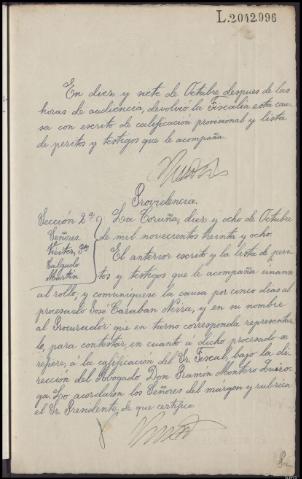 L.2012996
En diez y siete de Octubre, despues de las
horas de audiencia, devolvió la Fiscalía esta cau-
sa con escrito de calificación provisional y lista
de peritos y testigos que le acompaña.
Providencia.
Seccion 2ª
Señores
Salgado
Martin
La Coruña, diez y ocho de Octubre
de mil novecientos veinte y ocho.
El anterior escrito y la lista de peri-
tos y testigos que le acompaña unanse
al rollo, y comuniquese la causa por cinco dias al
procesado José Caraban Neira, y en su nombre
al Procurador que en turno corresponda representar-
le, para contestar, en cuanto a dicho procesado se
refiere, á la calificación del Sr. Fiscal, bajo la di-
rección del Abogado Don Ramón Montero Quiro-
ga. Lo acordaron los Señores del margen y rubrica
el Sr. Presidente, de que certifico